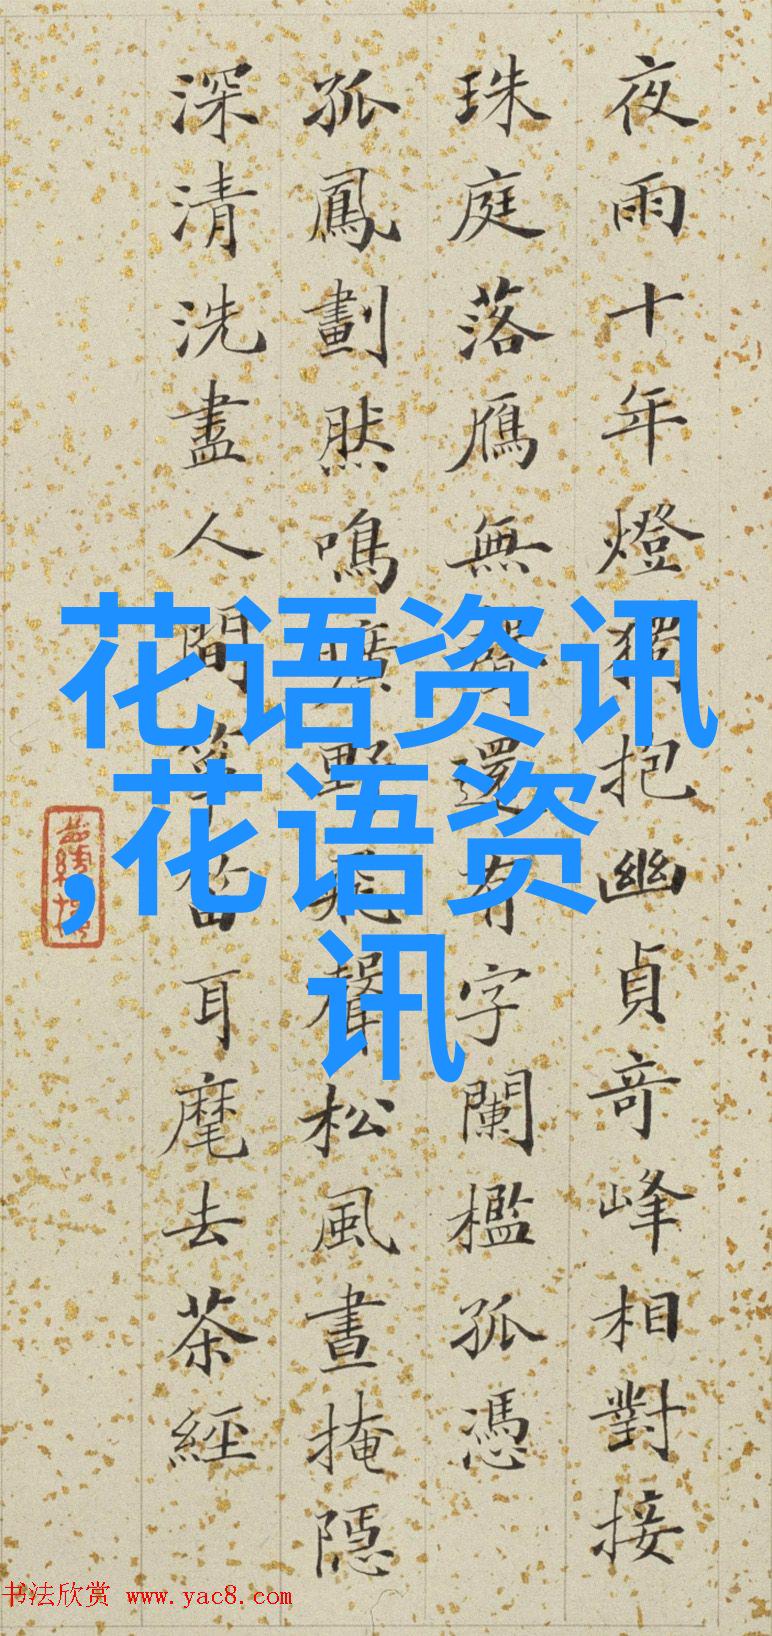 夜雨十年燈獨抱幽貞奇峰相對接
珠庭落鴈無聲還有字闌檻孤憑
孤鳳劃然鳴曠野飛聲松風晝掩隱
深清洗盡人間箏笛耳麾去茶經
花语资讯
,花语资
讯
书法欣赏 www.yac8.com